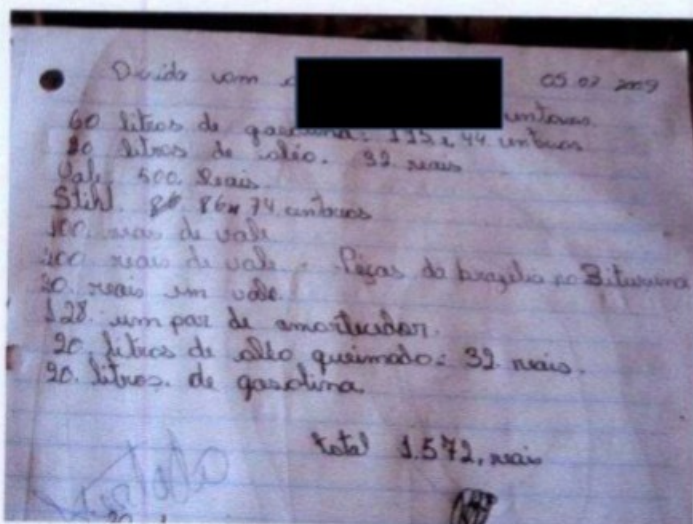 Divida com 05.07.2009
centavos.
60 litros de gasolina: 44 centavos
20 litros de oléo. 32 reais
Vale 500 Reais
Stihl. 86 74 centavos
100. reais de vale
200 reais de vale - Peças da brazilia no Bituruna
20. reais em vale.
128. um par de amortecidor.
20. litros de oléo queimado: 32. reais.
20. litros. de gasolina.
total 1.572, reais